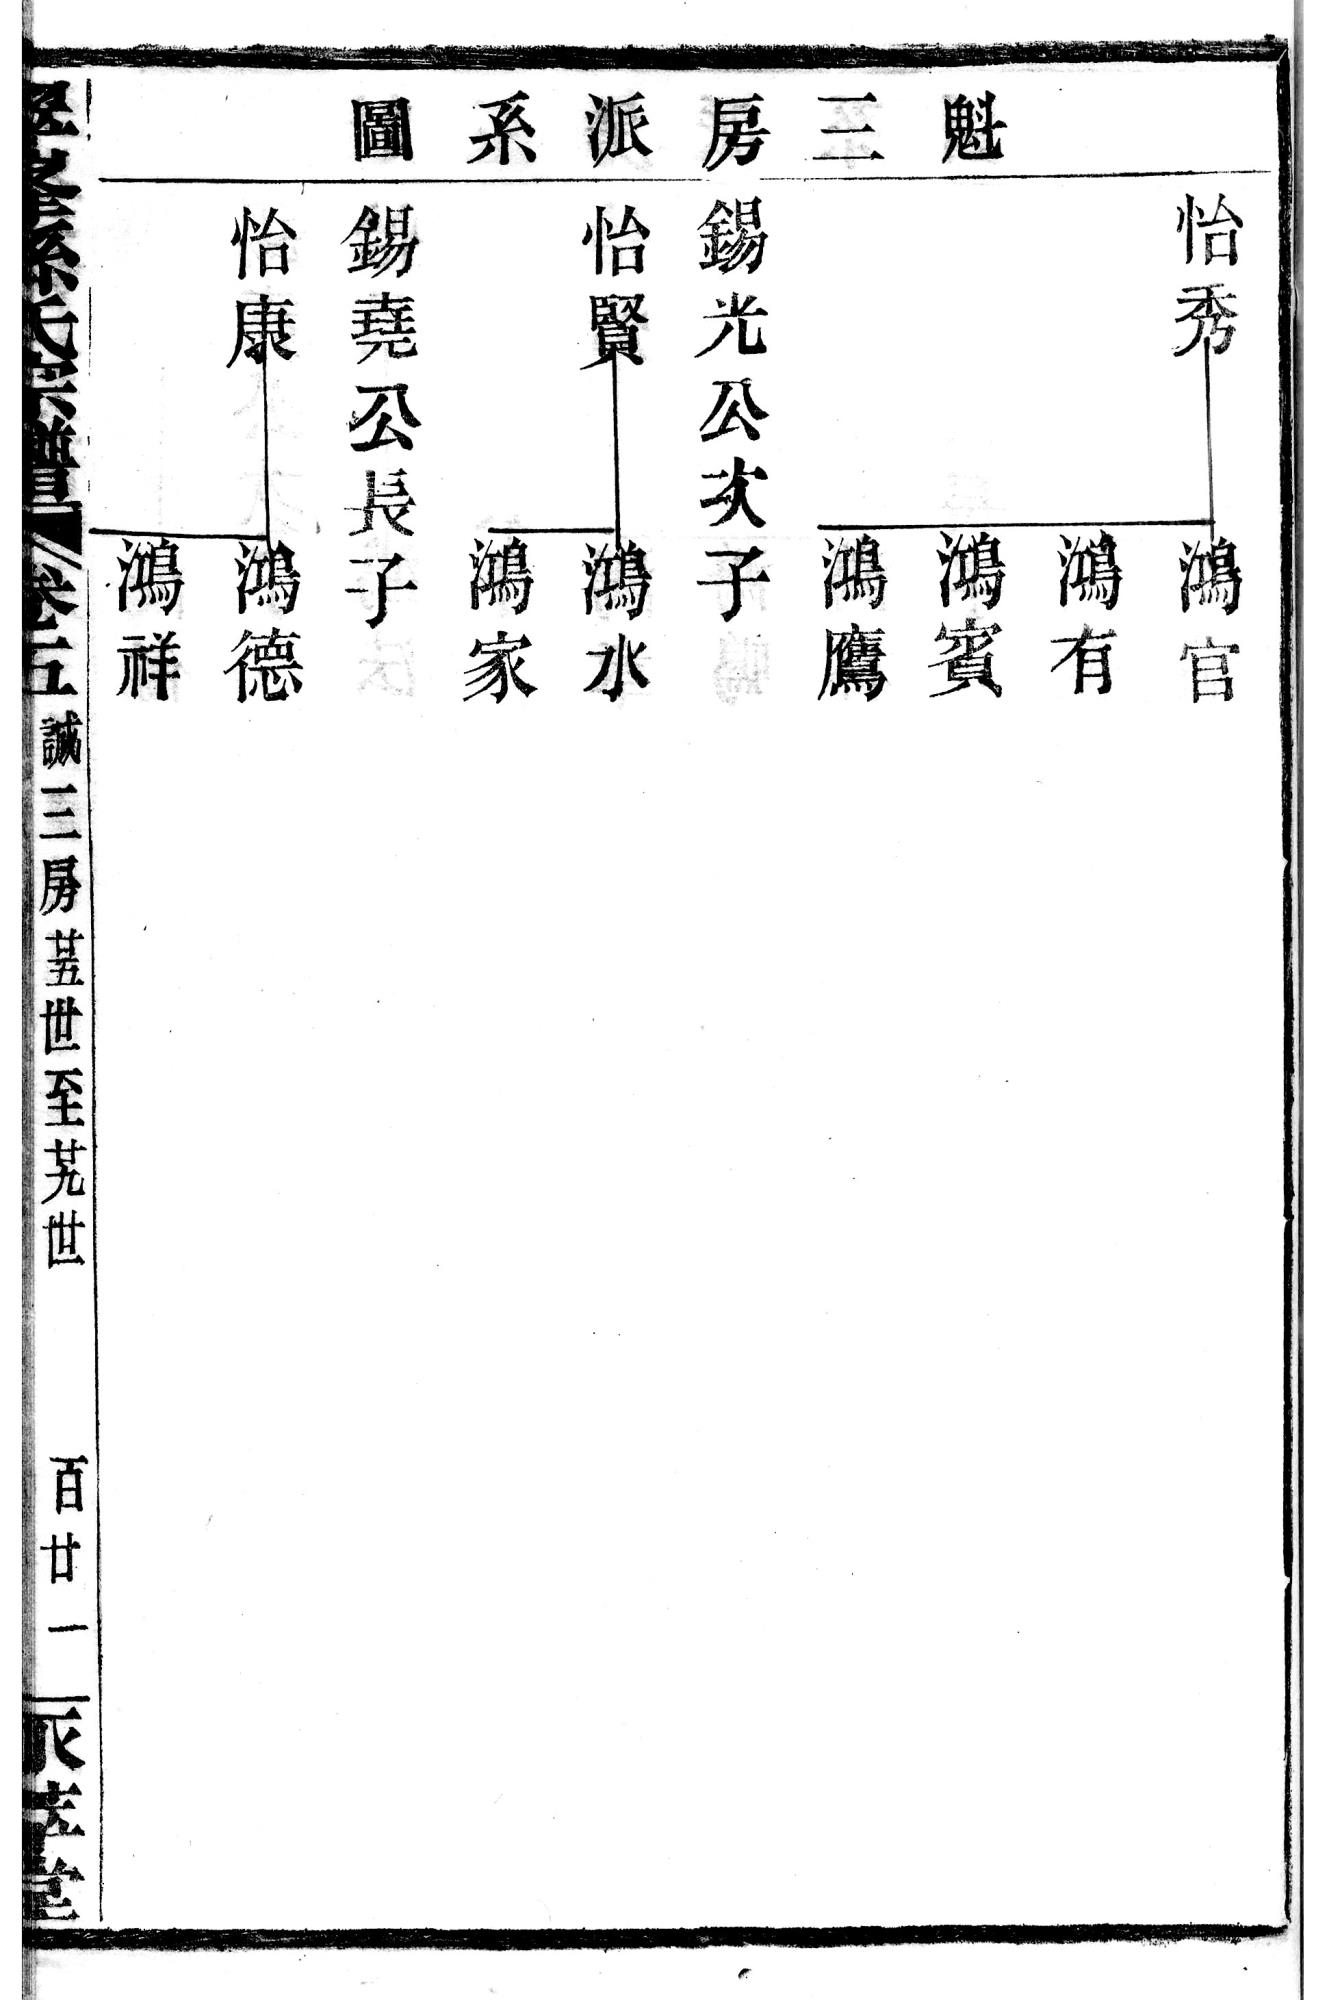 魁三房派系圖
怡秀
鴻官
鴻有
鴻賓
鴻鷹
錫光公次子
怡賢
鴻水
鴻家
錫堯公長子
怡康
鴻德
鴻祥
孫氏宗譜
卷五
誠三房 廿五世至廿九世
百廿一
堂